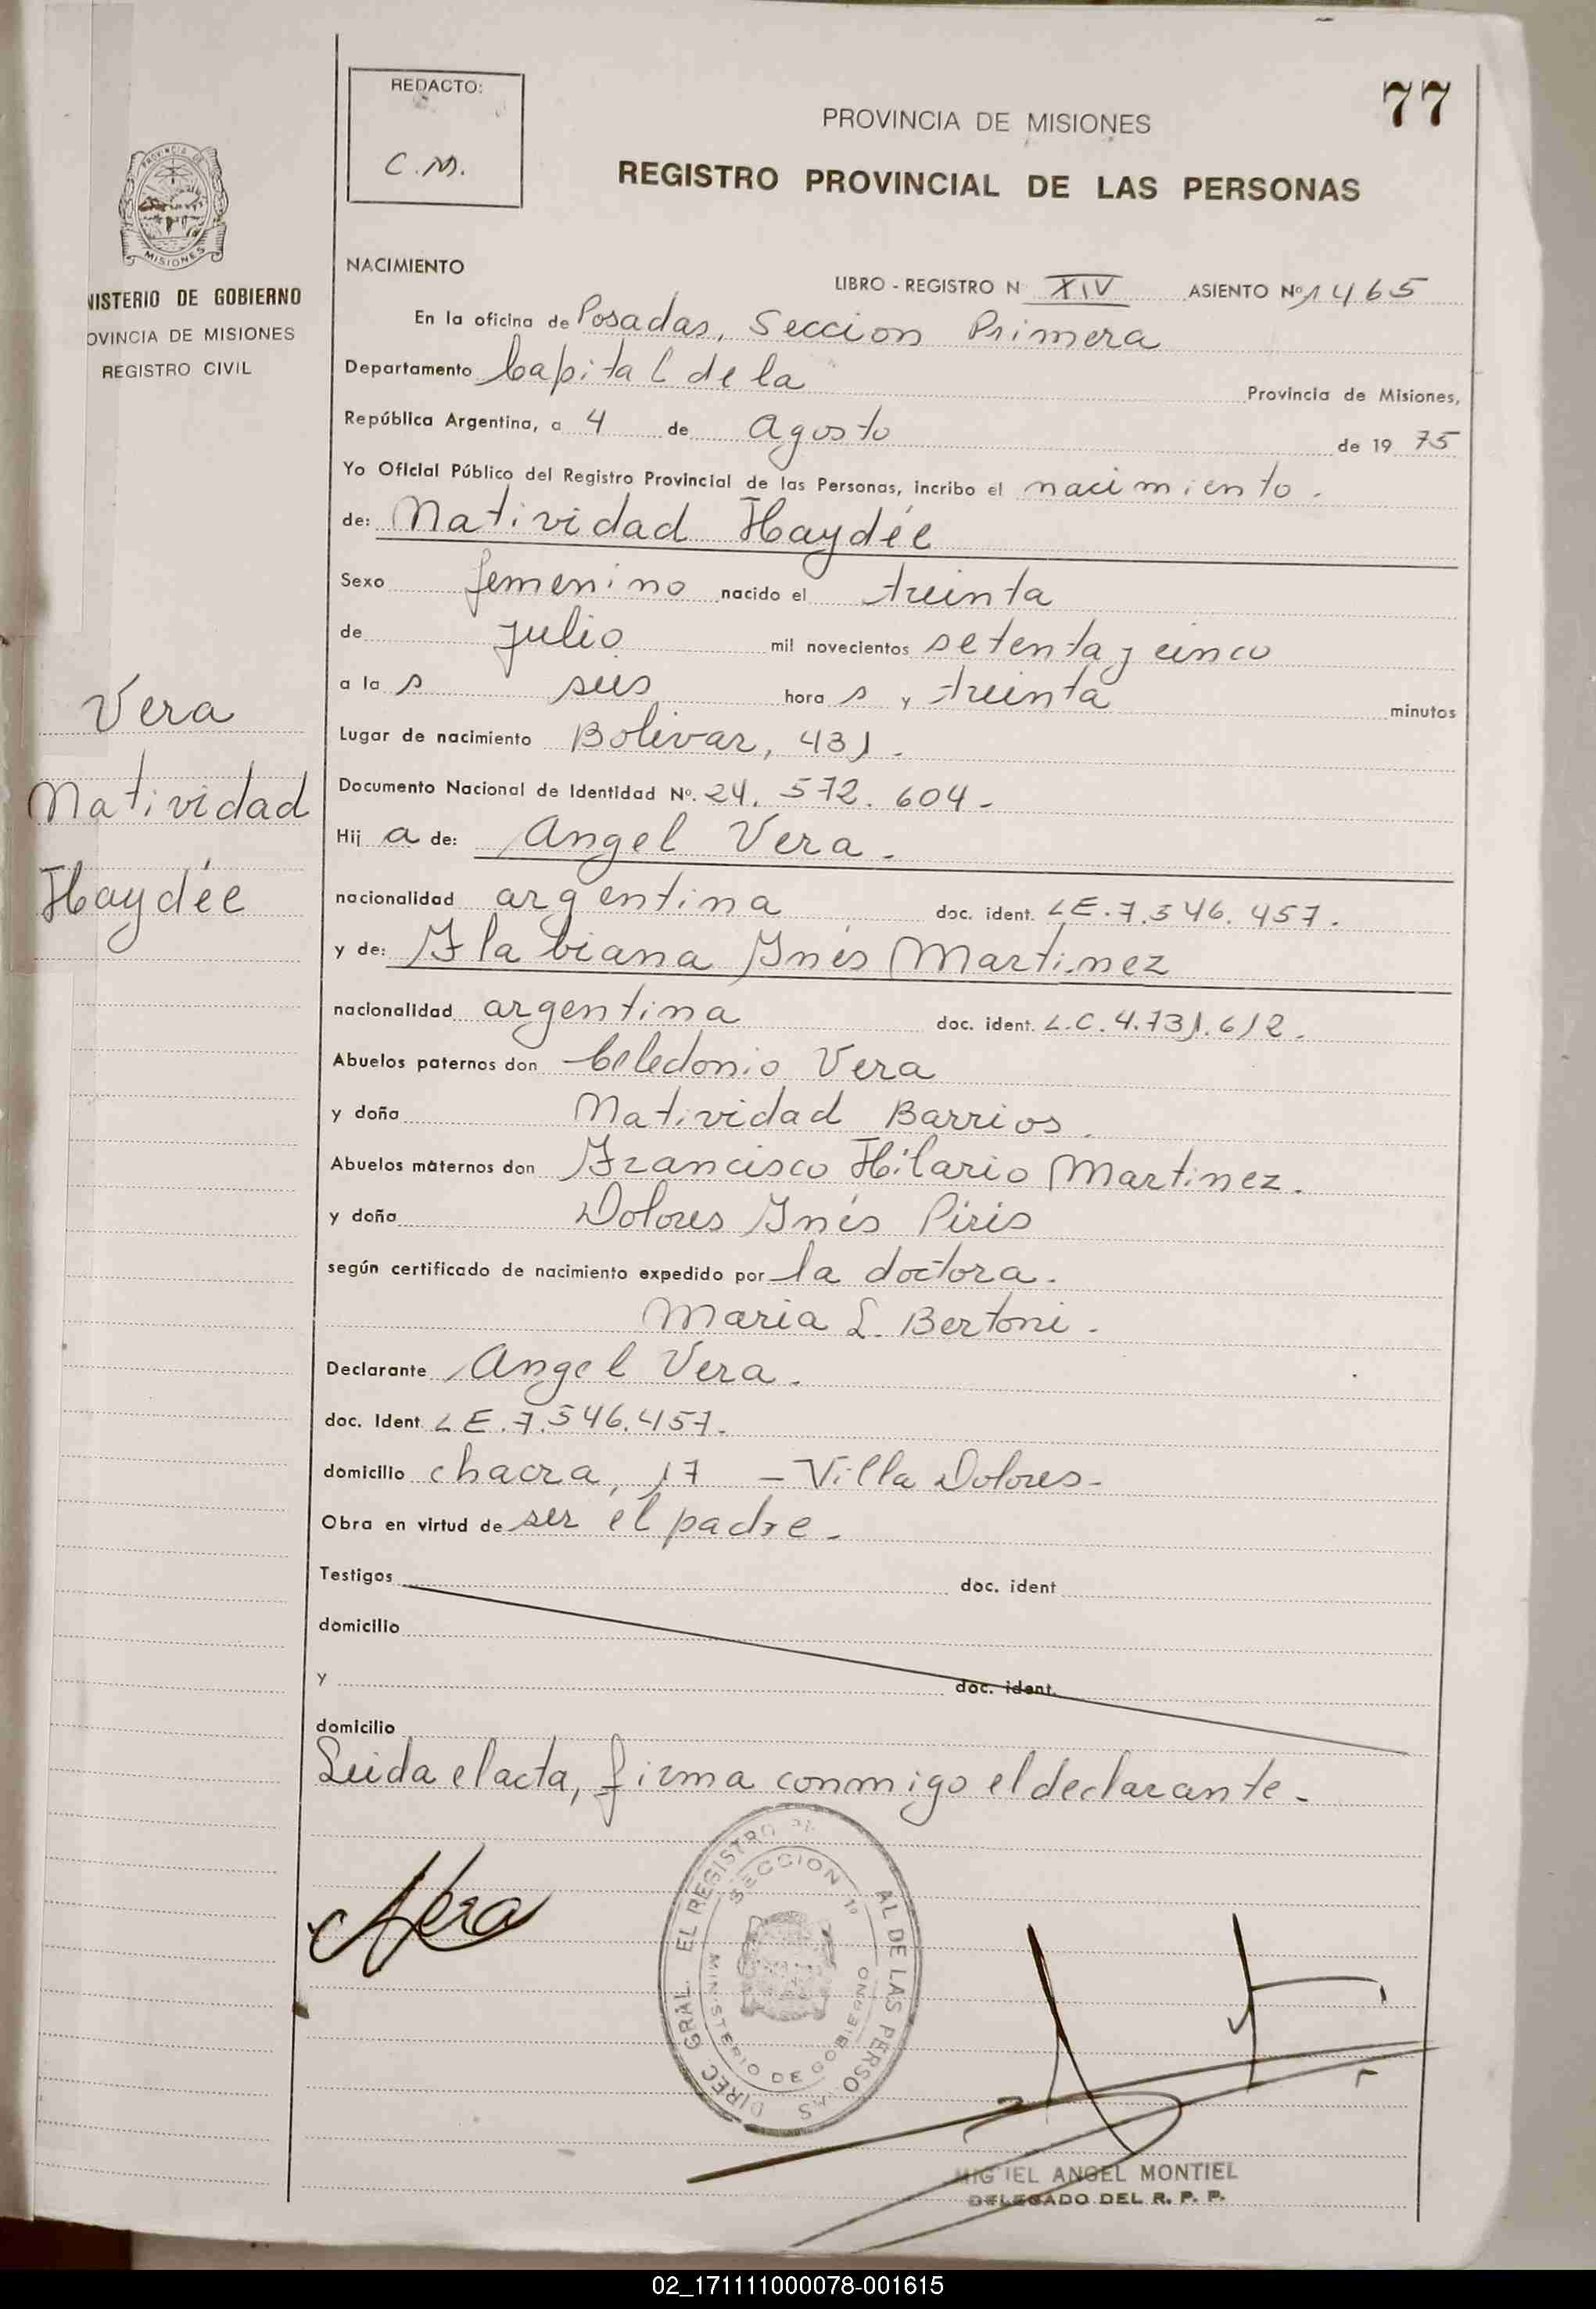 REDACTO:
C.M.
77
PROVINCIA DE MISIONES
REGISTRO PROVINCIAL DE LAS PERSONAS
PROVINCIA DE
MISIONES
NISTERIO DE GOBIERNO
OVINCIA DE MISIONES
REGISTRO CIVIL
Vera
Natividad
Haydée
NACIMIENTO
LIBRO - REGISTRO N XIV ASIENTO Nº 1465
En la oficina de Posadas, Seccion Primera
Departamento Capital de la Provincia de Misiones,
República Argentina, a 4 de Agosto de 19 75
Yo Oficial Público del Registro Provincial de las Personas, incribo el nacimiento.
de: Natividad Haydée
Sexo femenino nacido el treinta
de julio mil novecientos setenta y cinco
a la s seis hora s y treinta minutos
Lugar de nacimiento Bolivar, 431.
Documento Nacional de Identidad Nº. 24. 572. 604-
Hij a de: Angel Vera.
nacionalidad argentina doc. ident. LE. 7.546.457.
y de: Flabiana Ynés Martinez
nacionalidad argentina doc. ident. L.C. 4.731.612.
Abuelos paternos don Celedonio Vera
y doña Natividad Barrios.
Abuelos maternos don Francisco Hilario Martinez.
y doña Dolores Ynés Piris
según certificado de nacimiento expedido por la doctora.
Maria L. Bertoni.
Declarante Angel Vera.
doc. Ident. LE. 7.546.457.
domicilio chacra, 17 - Villa Dolores-
Obra en virtud de ser el padre-
Testigos doc. ident
domicilio
y doc. ident.
domicilio
Leida el acta, firma conmigo el declarante-
AVera
DIREC GRAL. EL REGISTRO P AL DE LAS PERSO AS
SECCION 1º
MINISTERIO DE GOBIERNO
MIG IEL ANGEL MONTIEL
DELEGADO DEL R. P. P.
02_171111000078-001615